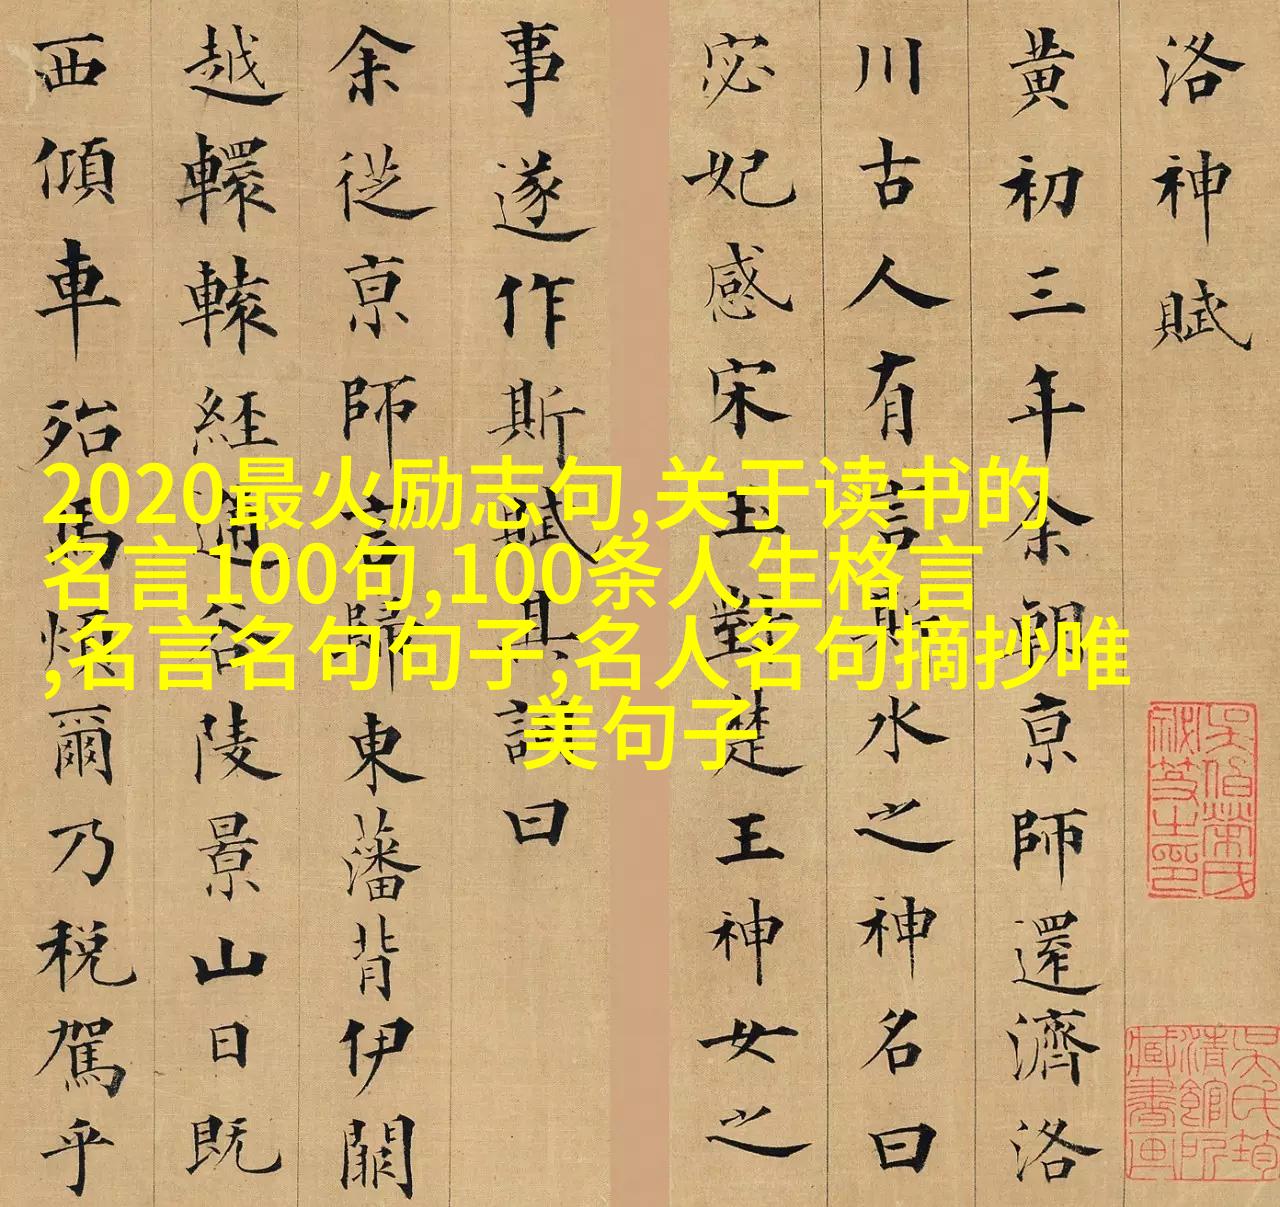 洛神賦
黄初三年余朝亰師還濟洛
川古人有言斯水之神名曰
宓妃感宋玉對楚王神女之
事遂作斯賦其詞曰
余從亰師言歸東藩背伊闕
越轘轅経通谷陵景山日既
西傾車殆馬煩爾乃稅駕乎
2020最火励志句,关于读书的
名言100句,100条人生格言
,名言名句句子,名人名句摘抄唯
美句子
吳氏筠
清館所
藏書画